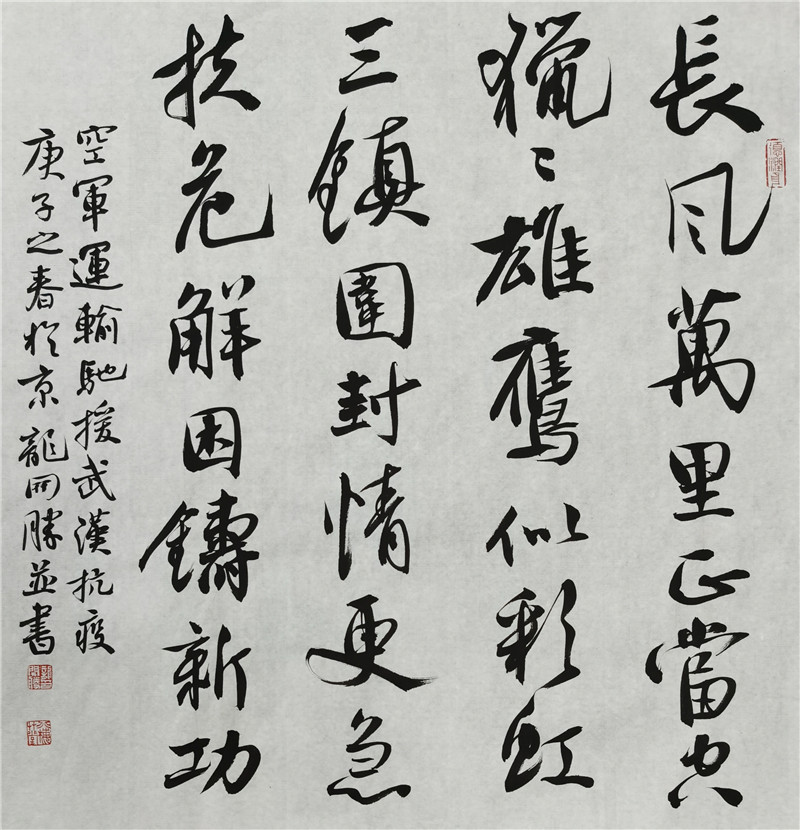 長風萬里正當空
獵〻雄鷹似彩虹
三鎮圍封情更急
扶危解困鑄新功
空軍運輸馳援武漢抗疫
庚子之春於京龍開勝並書